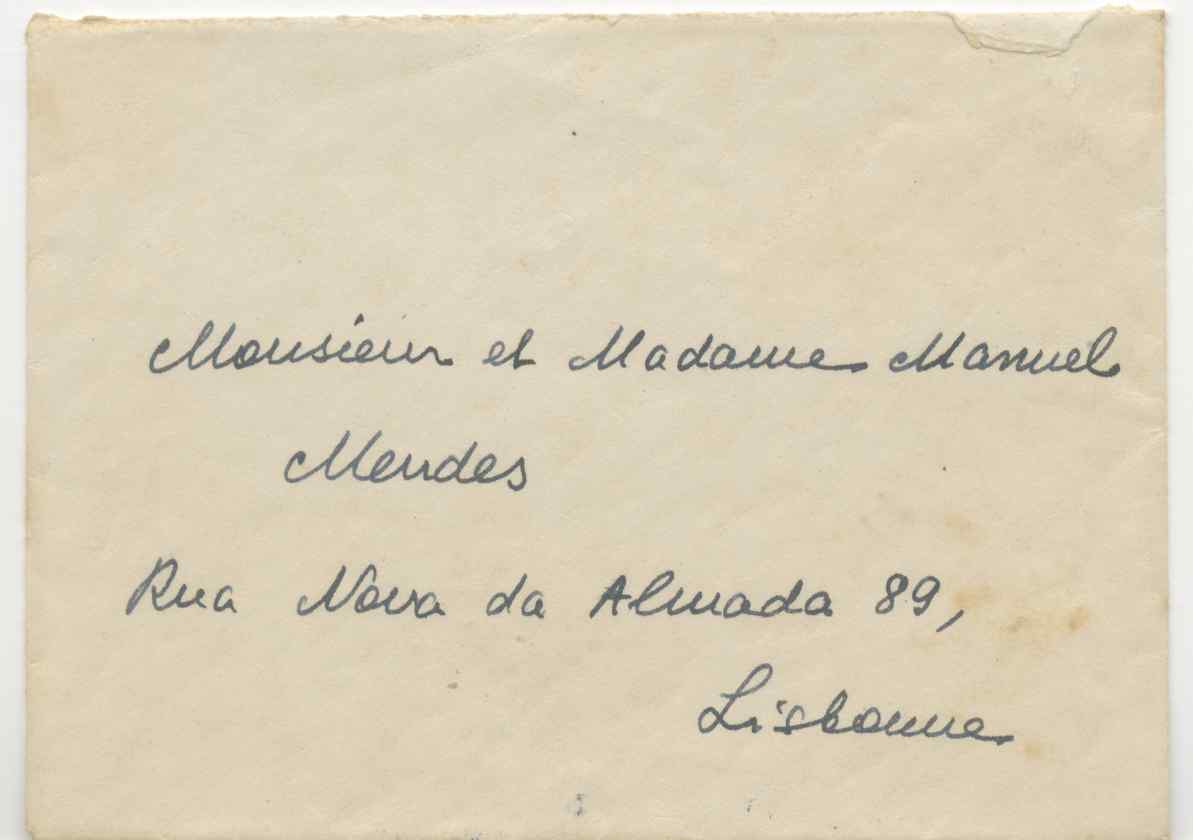 Monsieur et Madame Manuel
Mendes
Rua Nova da Almada 89,
Lisbonne